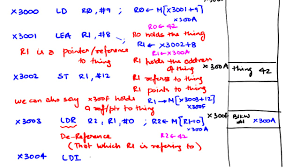 x3000 LD R0, #9 ; R0 ← M[x3001+9]
x300A
R0 ← 42
x3001 LEA R1, #8 R0 holds the thing
R1 ← x3002+8
R1 is a pointer/reference to thing
R1 ← x300A
R1 holds the address of thing
x300A thing 42
x3002 ST R1, #12 R1 refers to thing
R1 points to thing
we can also say x300F holds a ref/ptr to thing
R1 → M[x3003+12]
x300F
x3003 LDR R2, R1, #0 ; R2 ← M[R1+0]
x300A
x300F x300A
De-Reference R2 ← 42
(That which R1 is referring to)
x3004 LDI